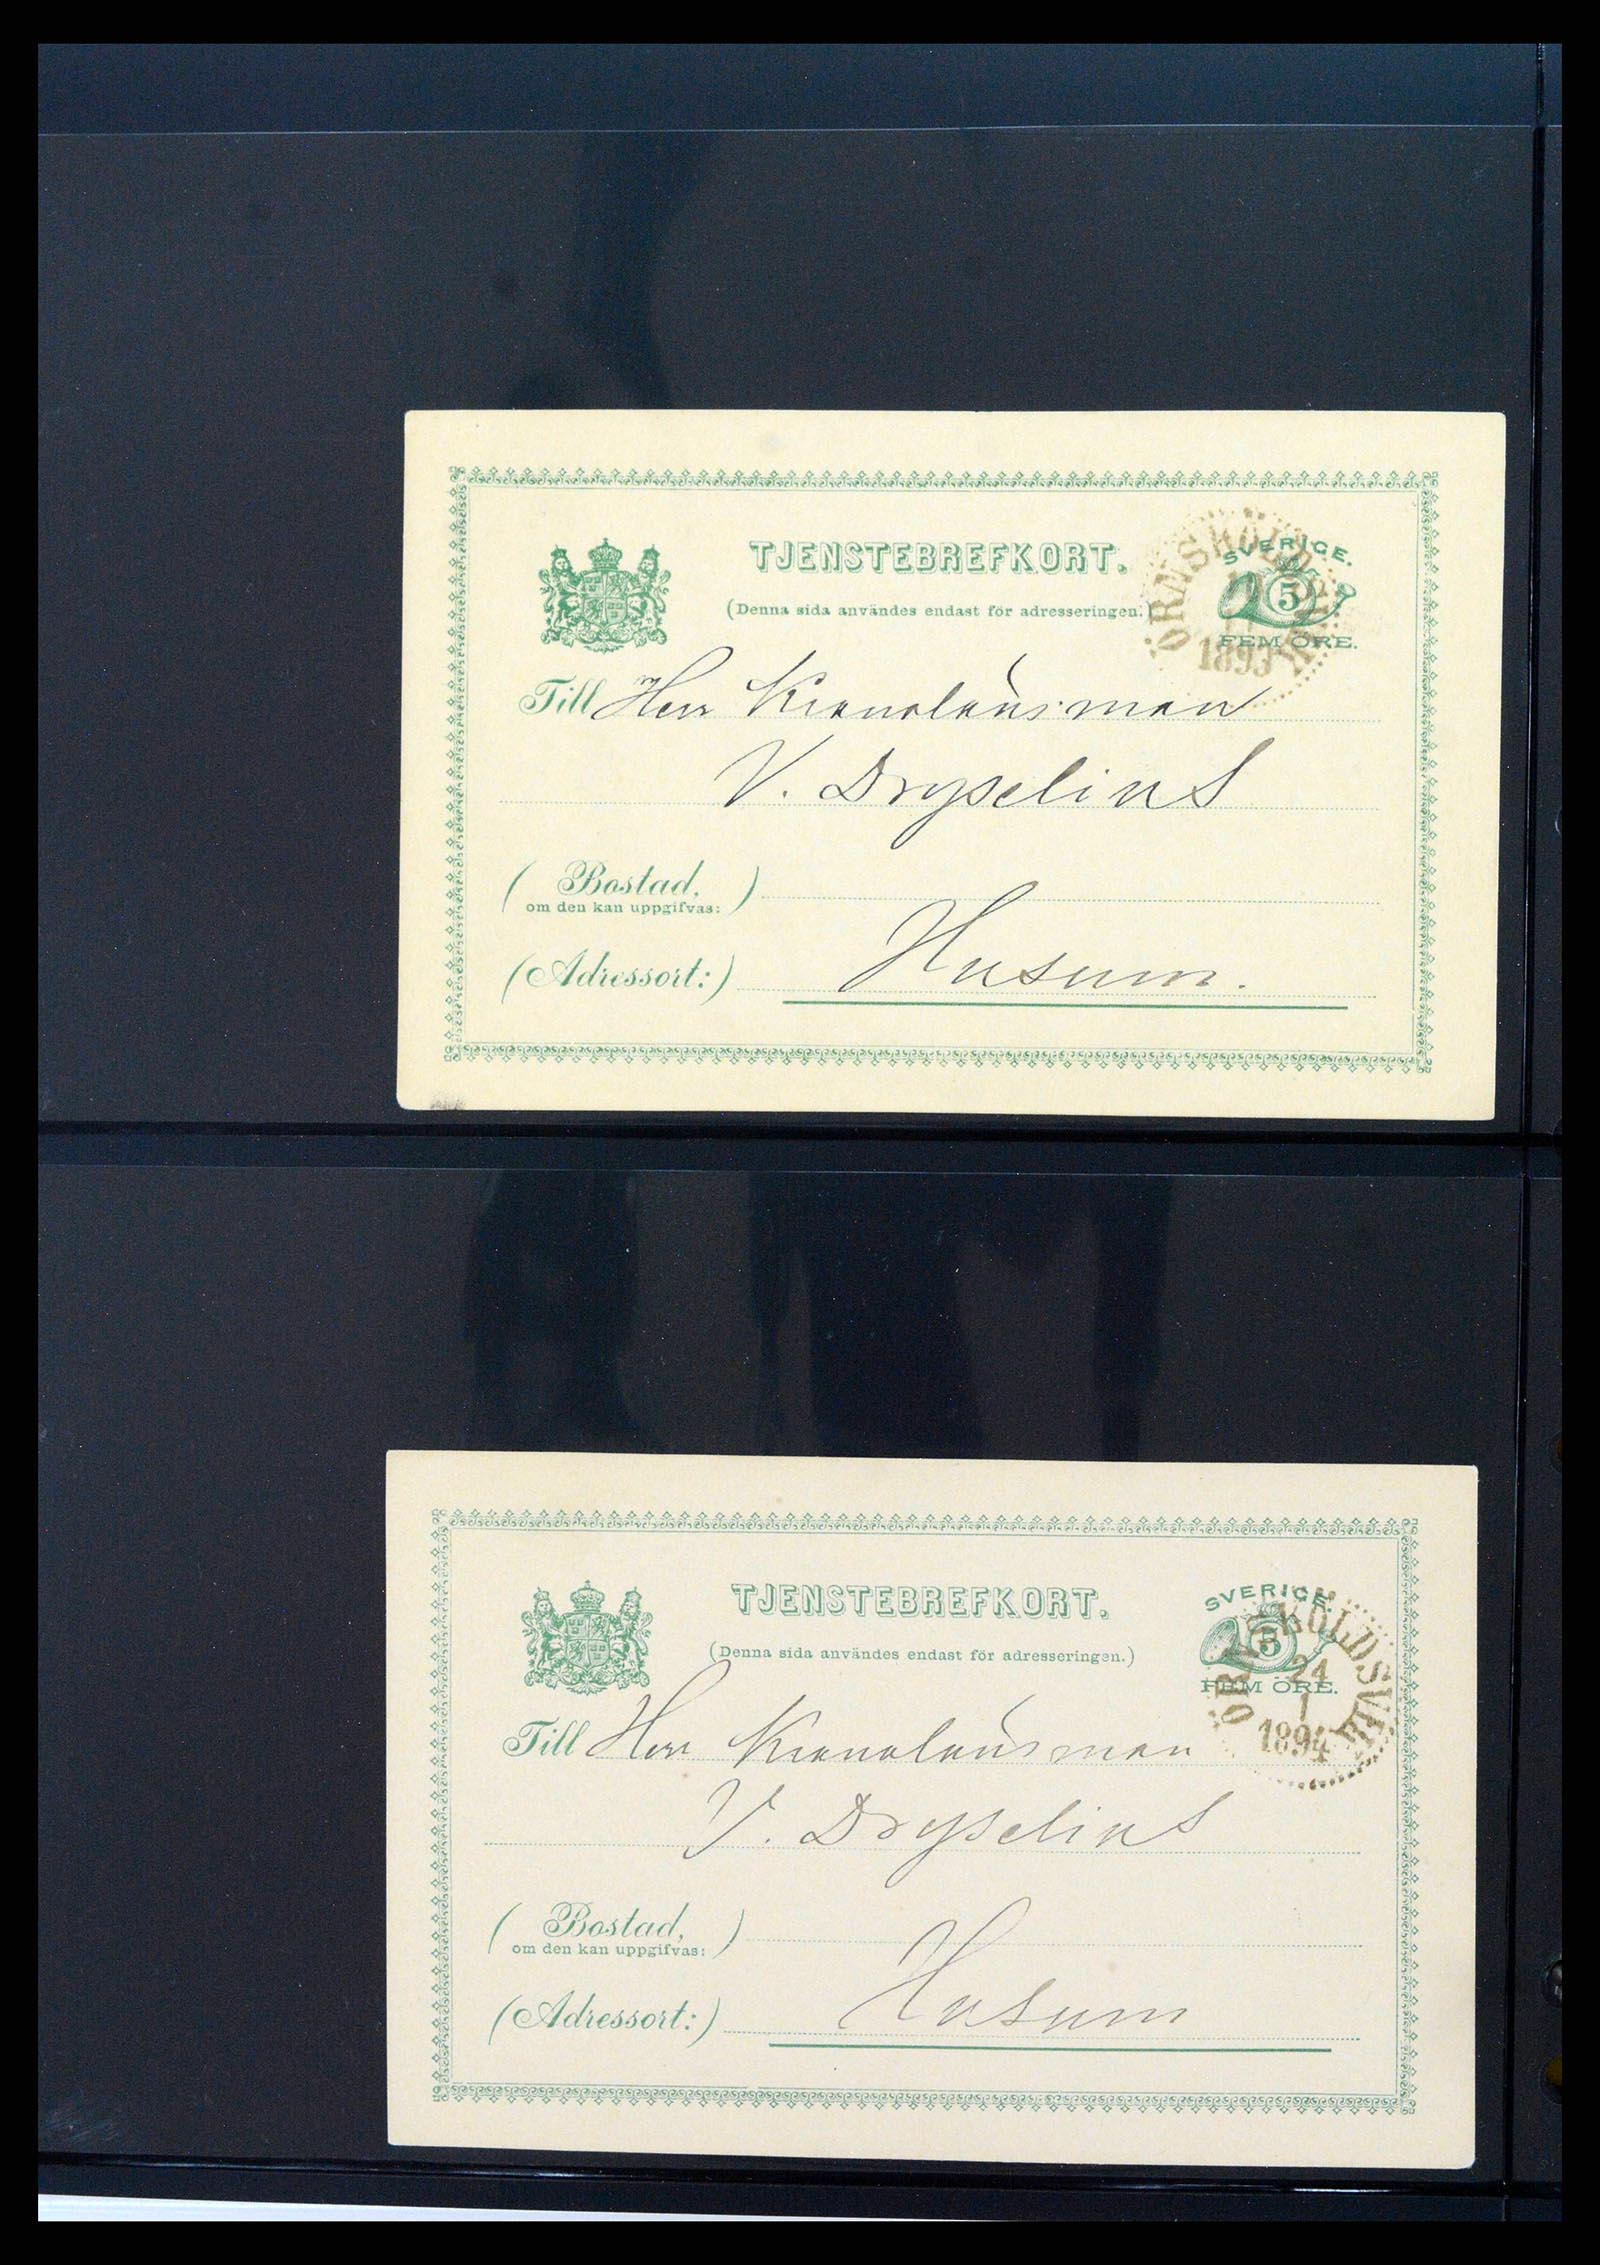 TJENSTEBREFKORT.
(Denna sida användes endast för adresseringen.)
SVERIGE.
5
FEM ÖRE.
ÖRNSKÖLDSVIK
1893
Till Herr Kronolänsman
V. Dryselius
(Bostad,
om den kan uppgifvas:)
(Adressort:) Husum.
TJENSTEBREFKORT.
(Denna sida användes endast för adresseringen.)
SVERIGE.
5
FEM ÖRE.
ÖRNSKÖLDSVIK
24
1
1894
Till Herr Kronolänsman
V. Dryselius
(Bostad,
om den kan uppgifvas:)
(Adressort:) Husum